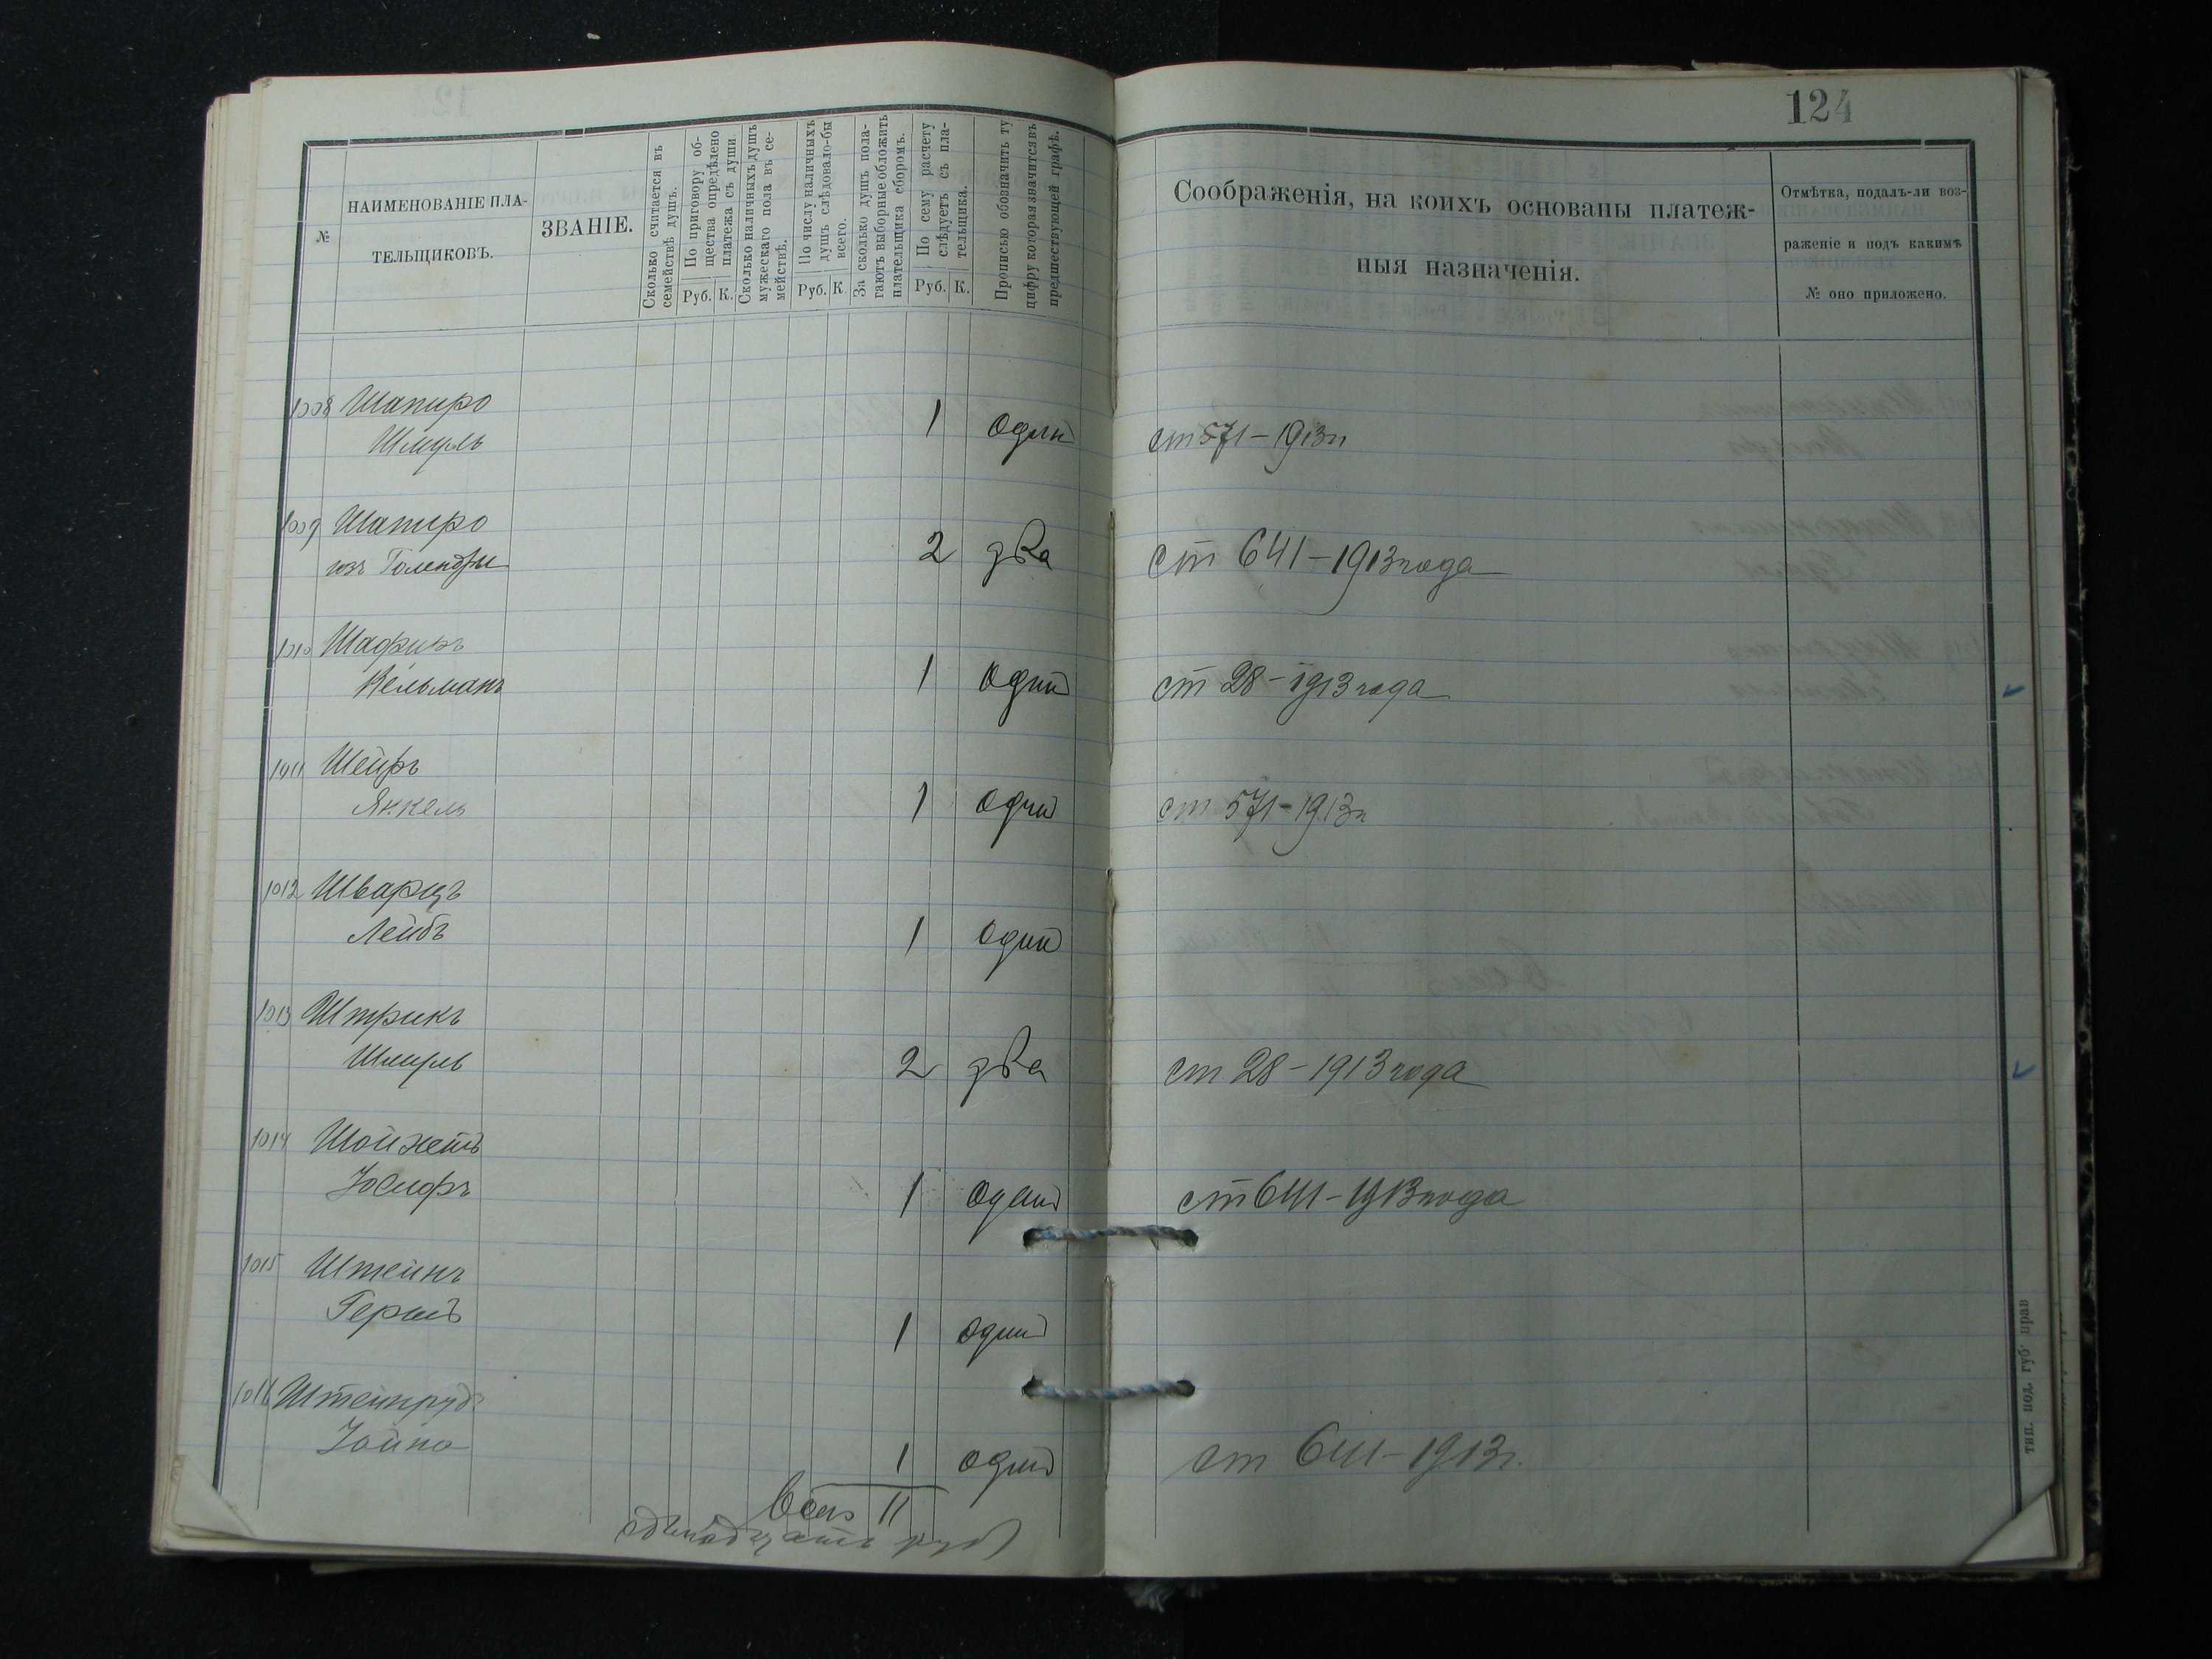 124
№
НАИМЕНОВАНІЕ ПЛА-
ТЕЛЬЩИКОВЪ.
ЗВАНІЕ.
Сколько считается въ
семействѣ душъ.
По приговору об-
щества опредѣлено
платежа съ души
Руб. К.
Сколько наличныхъ душъ
мужескаго пола въ се-
мействѣ.
По числу наличныхъ
душъ слѣдовало-бы
всего.
Руб. К
За сколько душъ пола-
гаютъ выборные обложить
плательщика сборомъ.
По сему расчету
слѣдуетъ съ пла-
тельщика.
Руб. К.
Прописью обозначить ту
цифру которая значится въ
предшествующей графѣ.
Соображенія, на коихъ основаны платеж-
ныя назначенія.
Отмѣтка, подалъ-ли воз-
раженіе и подъ какимъ
№ оно приложено.
1008 Шапиро
Шмуль 1 один ст 571-1913г
1009 Шапиро
изъ Голендры 2 два ст 641-1913 года
1010 Шафиръ
Кельманъ 1 один ст 28-1913 года
1011 Шейръ
Янкель 1 один ст 571-1913г
1012 Шварцъ
Лейбъ 1 один
1013 Штрикъ
Шмуль 2 два ст 28-1913 года
1014 Шойхетъ
Іосифъ 1 один ст 641-1913 года
1015 Штейнъ
Гершъ 1 один
1016 Штейнрудъ
Іойна 1 один ст 641-1913г.
Всего 11
одинадцать руб
тип. под. губ. прав